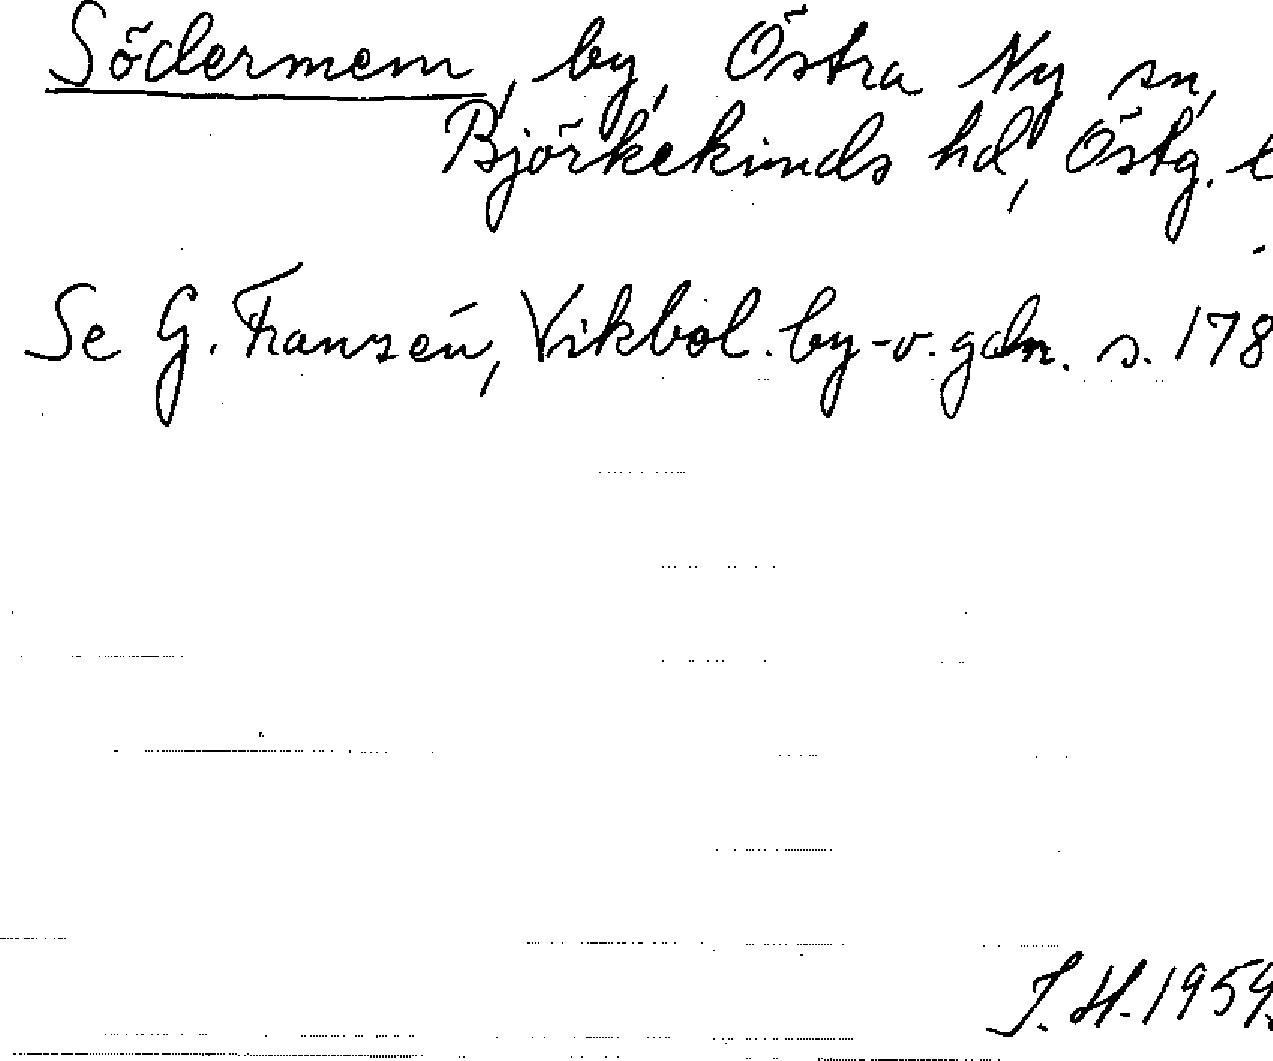 Södermem, by, Östra Ny sn,
Björkekinds hd, Östg. l
Se G. Franzén, Vikbol. by- o. gdn. s. 178
J. H. 1959.